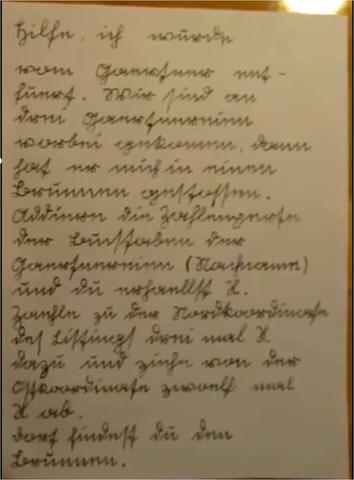 Hilfe, ich wurde
vom Gaertner ent-
fuert. Wir sind an
drei Gaertnereien
vorbei gekomen, dann
hat er mich in einen
Brunnen gestossen.
Addiere die Zahlenwerte
der Bucstaben der
Gaertnereien (Nachname)
und du erhaellst X.
Zaehle zu der Nordkoordinate
des Listings drei mal X
dazu und ziehe von der
Ostkoordinate zwoelf mal
X ab.
Dort findest du den
Brunnen.